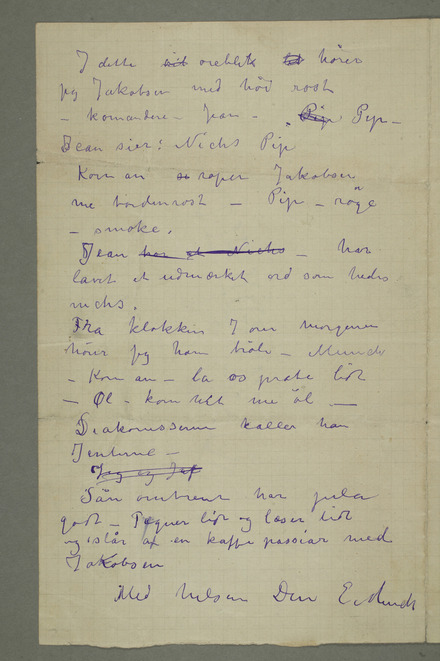 I dette oieblik hörer
jeg Jakobsen med höi rost
– komandere – Jean – „Pip Pip –
Jean sier: Nichs Pip
Kom an so roper Jakobsen
me tordenrost – Pip – röge
– smoke.
Jean har et Nichs – har
lavet et udmærket ord som heder
nichs.
Fra klokken 7 om morgenen
hörer jeg ham bröle – Munch
– Kom an – la os prate lidt
– Øl – kom till me öl —
Diakonisserne kaller han
Jentene –
Jeg og Jaf
Sån omtrent har jula
gaat – Tegner lidt og læser lidt
og slår af en kaffe passiar med
Jakobsen
Med hilsen Din E Munch